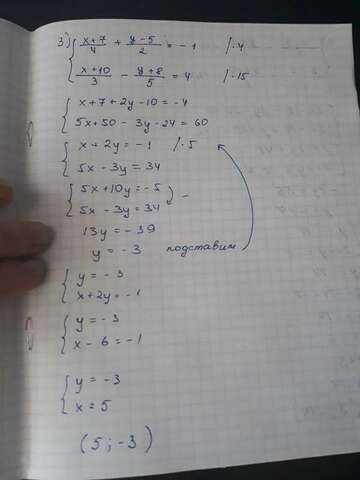 3) { (x+7)/4 + (y-5)/2 = -1 /·4
(x+10)/3 - (y+8)/5 = 4 /·15
{ x+7+2y-10=-4
5x+50-3y-24=60
{ x+2y=-1 /·5
5x-3y=34
{ 5x+10y=-5
5x-3y=34 ) -
13y=-39
y=-3 подставим
{ y=-3
x+2y=-1
{ y=-3
x-6=-1
{ y=-3
x=5
(5;-3)